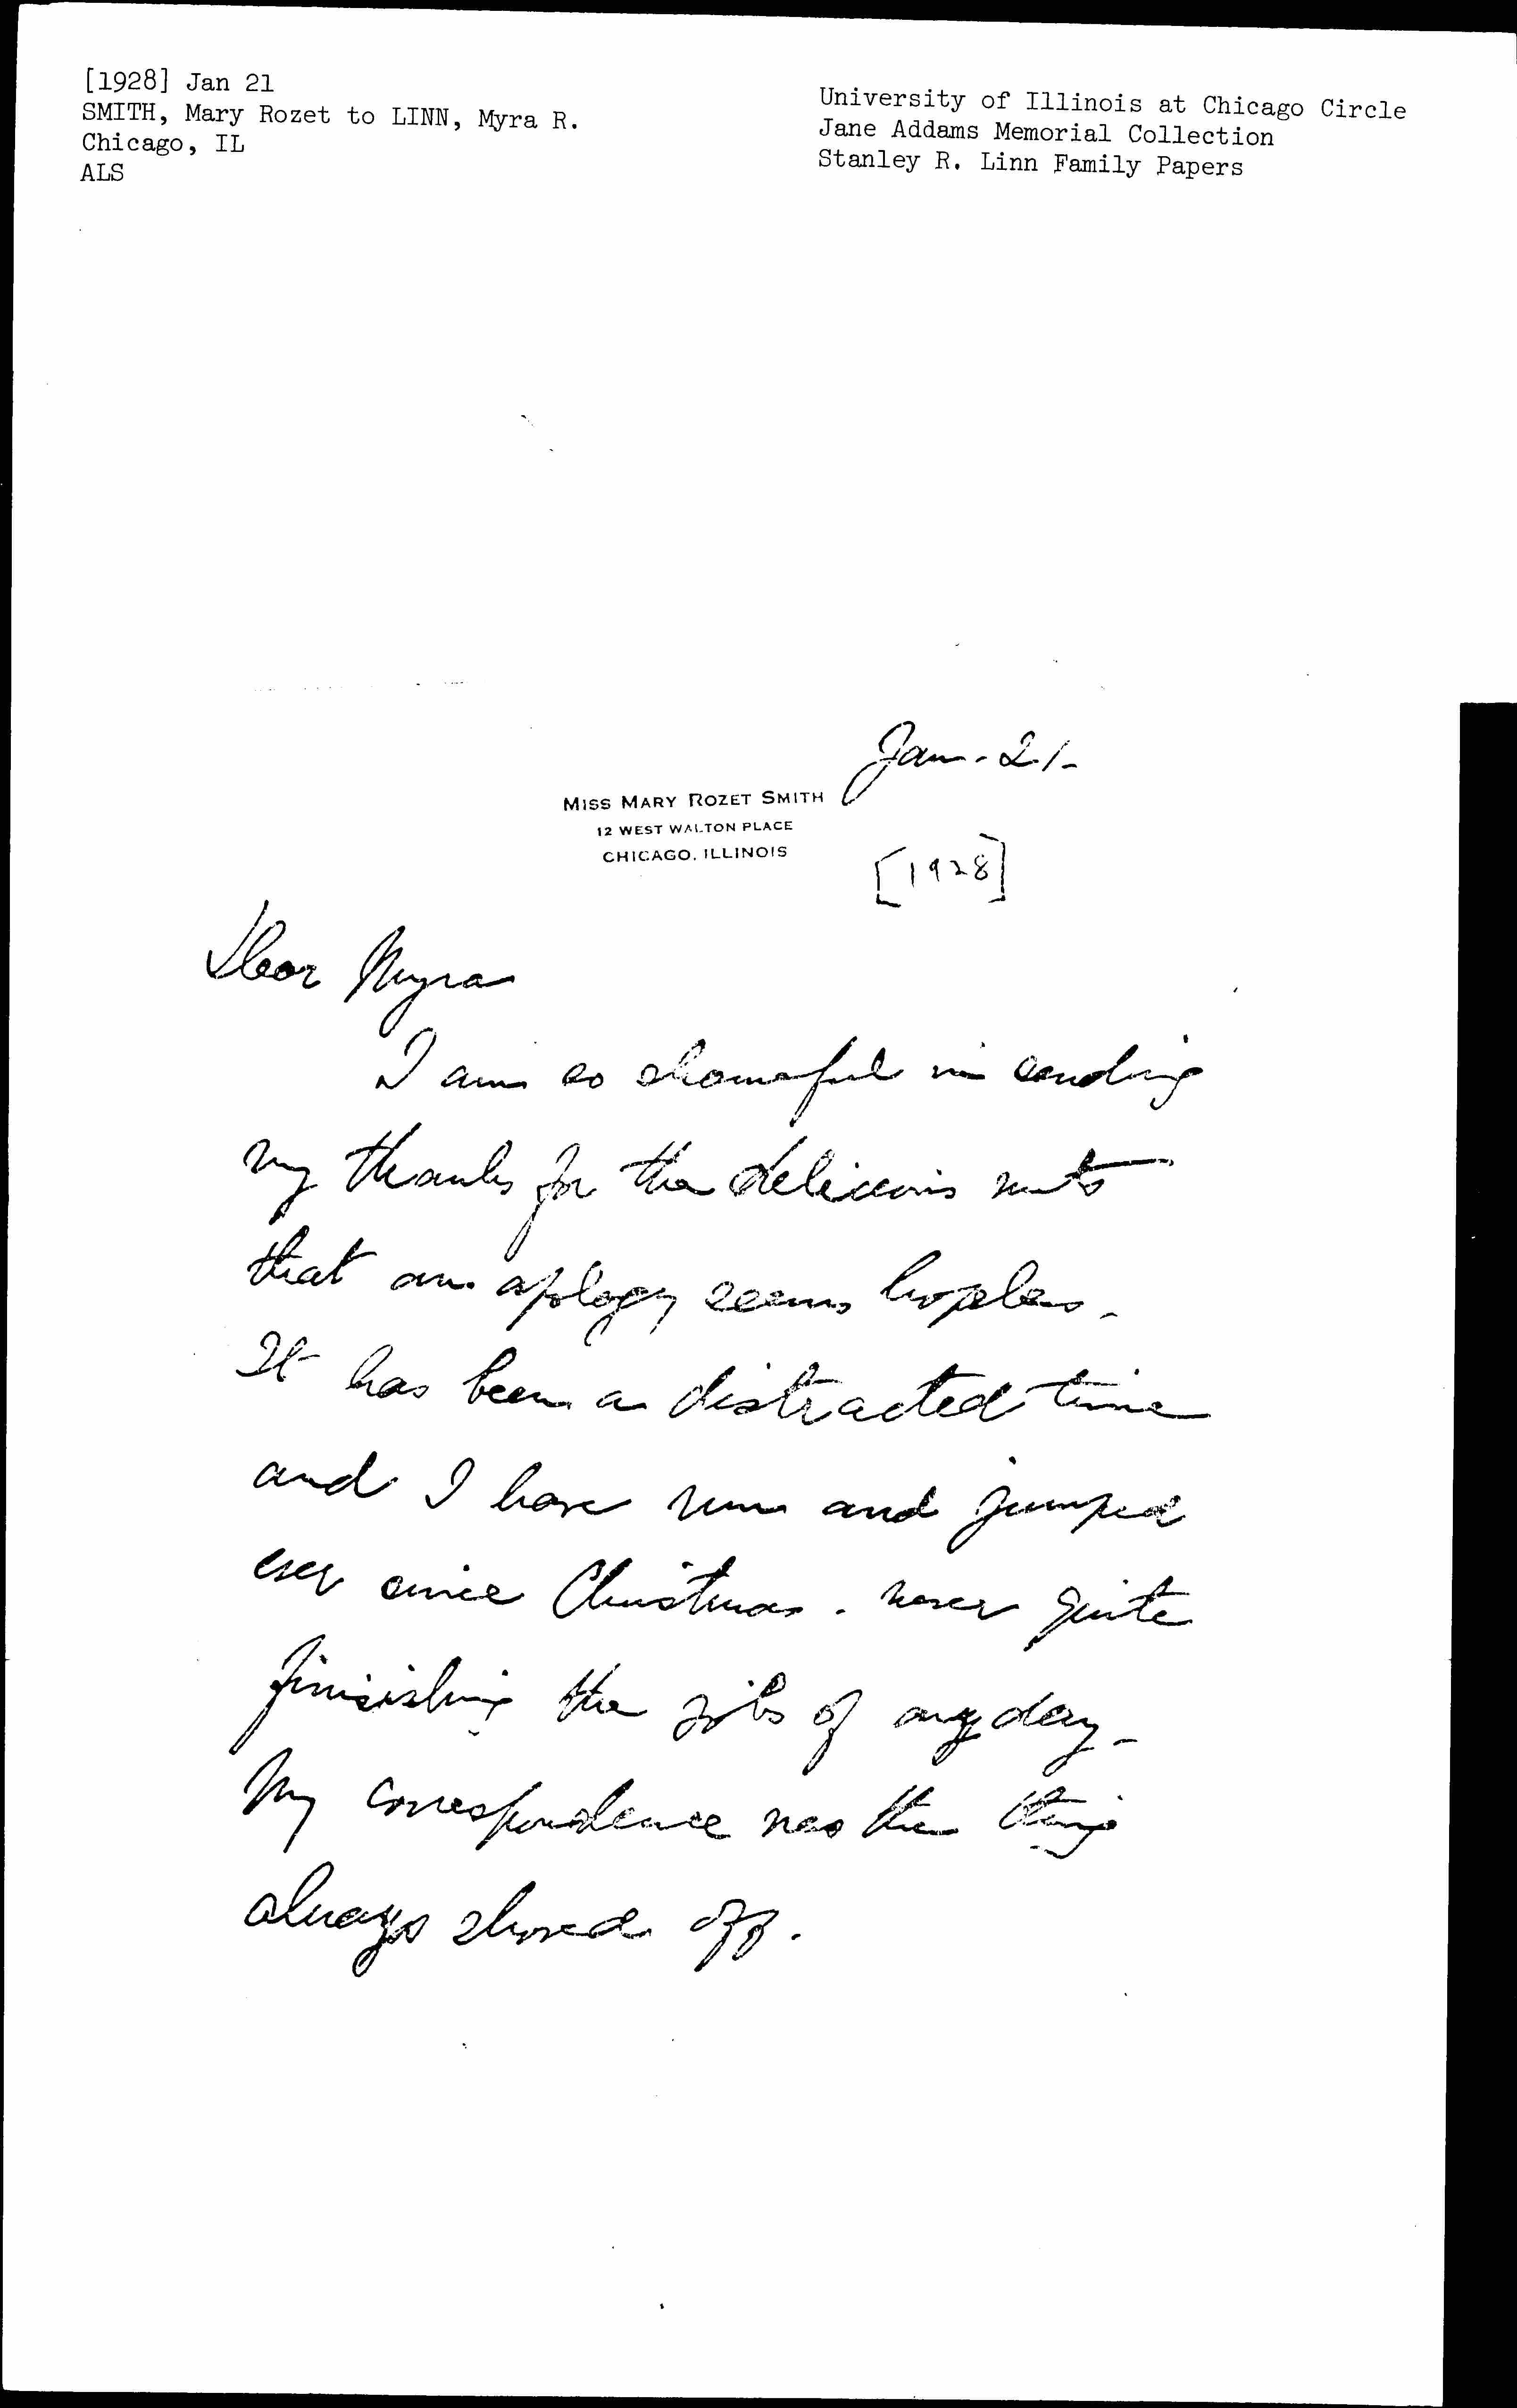 [1928] Jan 21
SMITH, Mary Rozet to LINN, Myra R.
Chicago, IL
ALS
University of Illinois at Chicago Circle
Jane Addams Memorial Collection
Stanley R. Linn Family Papers
Jan. 21-
MISS MARY ROZET SMITH
12 WEST WALTON PLACE
CHICAGO, ILLINOIS
[1928]
Dear Myra
I am so shameful in sending
my thanks for the delicious nuts
that an apology seems hopeless -
It has been a distracted time
and I have run and jumped
ever since Christmas - never quite
finishing the jobs of any day -
My correspondence was the thing
always shoved off.